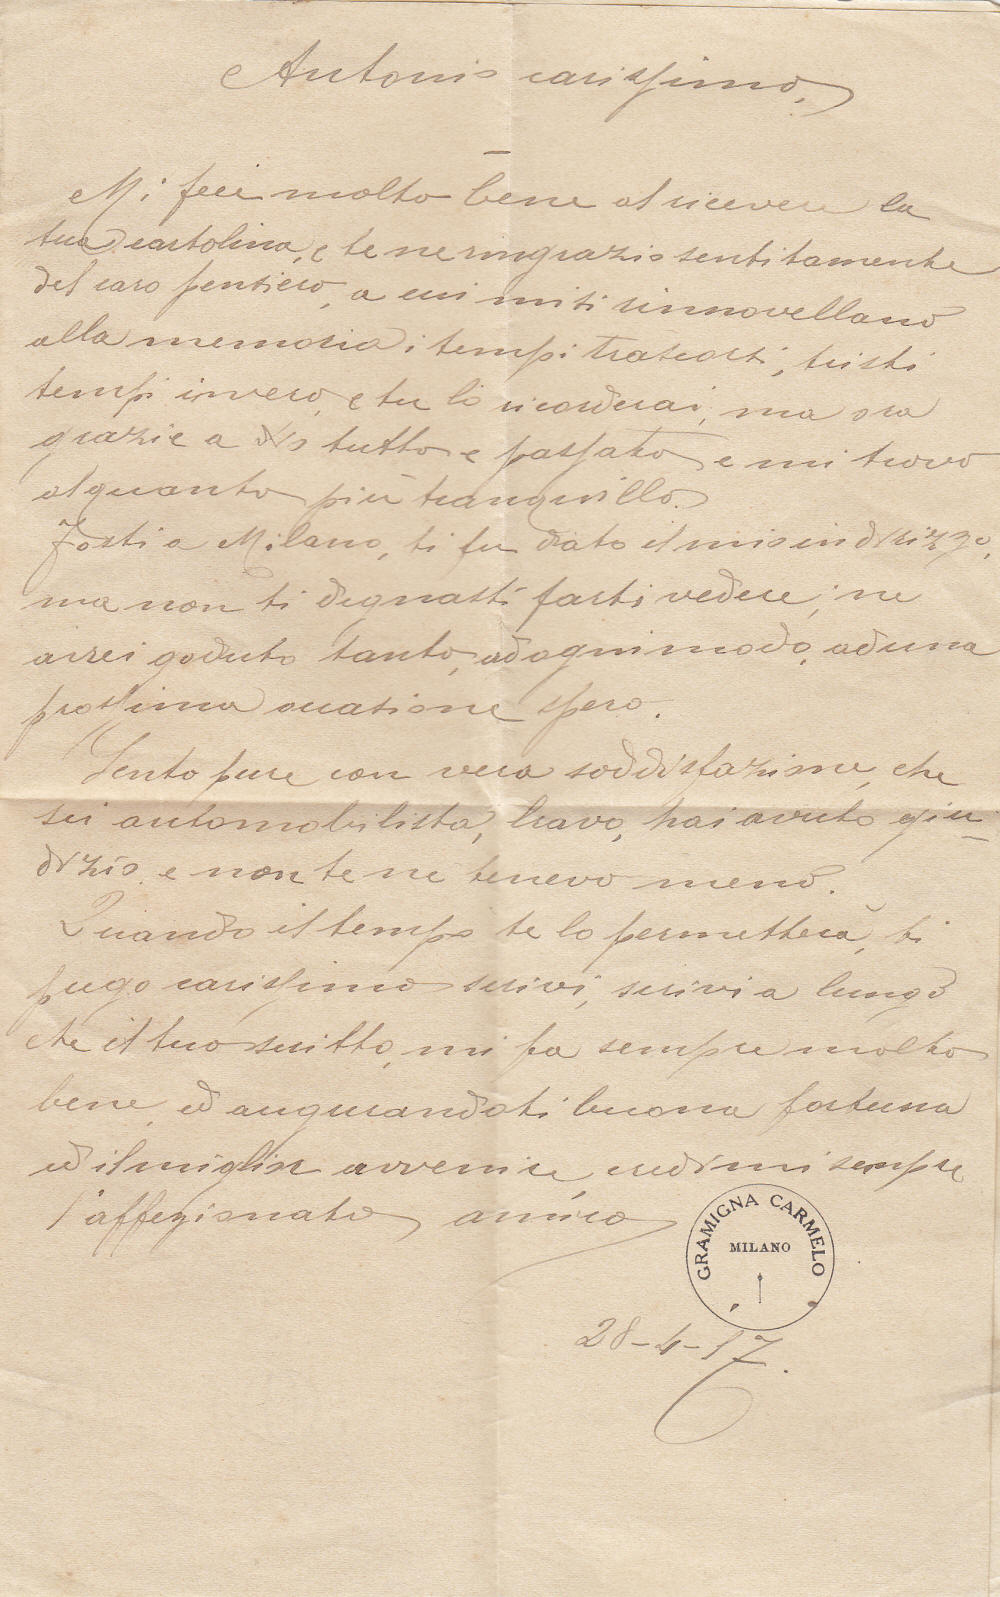 Antonio carissimo,
Mi fece molto bene al ricevere la
tua cartolina, e te ne ringrazio sentitamente
del caro pensiero, a cui mi ti rinnovellano
alla memoria i tempi trascorsi, tristi
tempi invero, e tu lo ricorderai, ma ora
grazie a Dio tutto e passato e mi trovo
alquanto più tranquillo.
Fosti a Milano, ti fu dato il mio indirizzo,
ma non ti degnasti farti vedere; ne
avrei goduto tanto, ad ogni modo, ad una
prossima occasione spero.
Sento pure con vera soddisfazione, che
sei automobilista, bravo, hai avuto giu-
dizio e non te ne tenevo meno.
Quando il tempo te lo permetterà, ti
prego carissimo scrivi, scrivi a lungo
che il tuo scritto, mi fa sempre molto
bene, ed augurandoti buona fortuna
ed il miglior avvenire, credimi sempre
l'affezionato amico
GRAMIGNA CARMELO
MILANO
28-4-17.